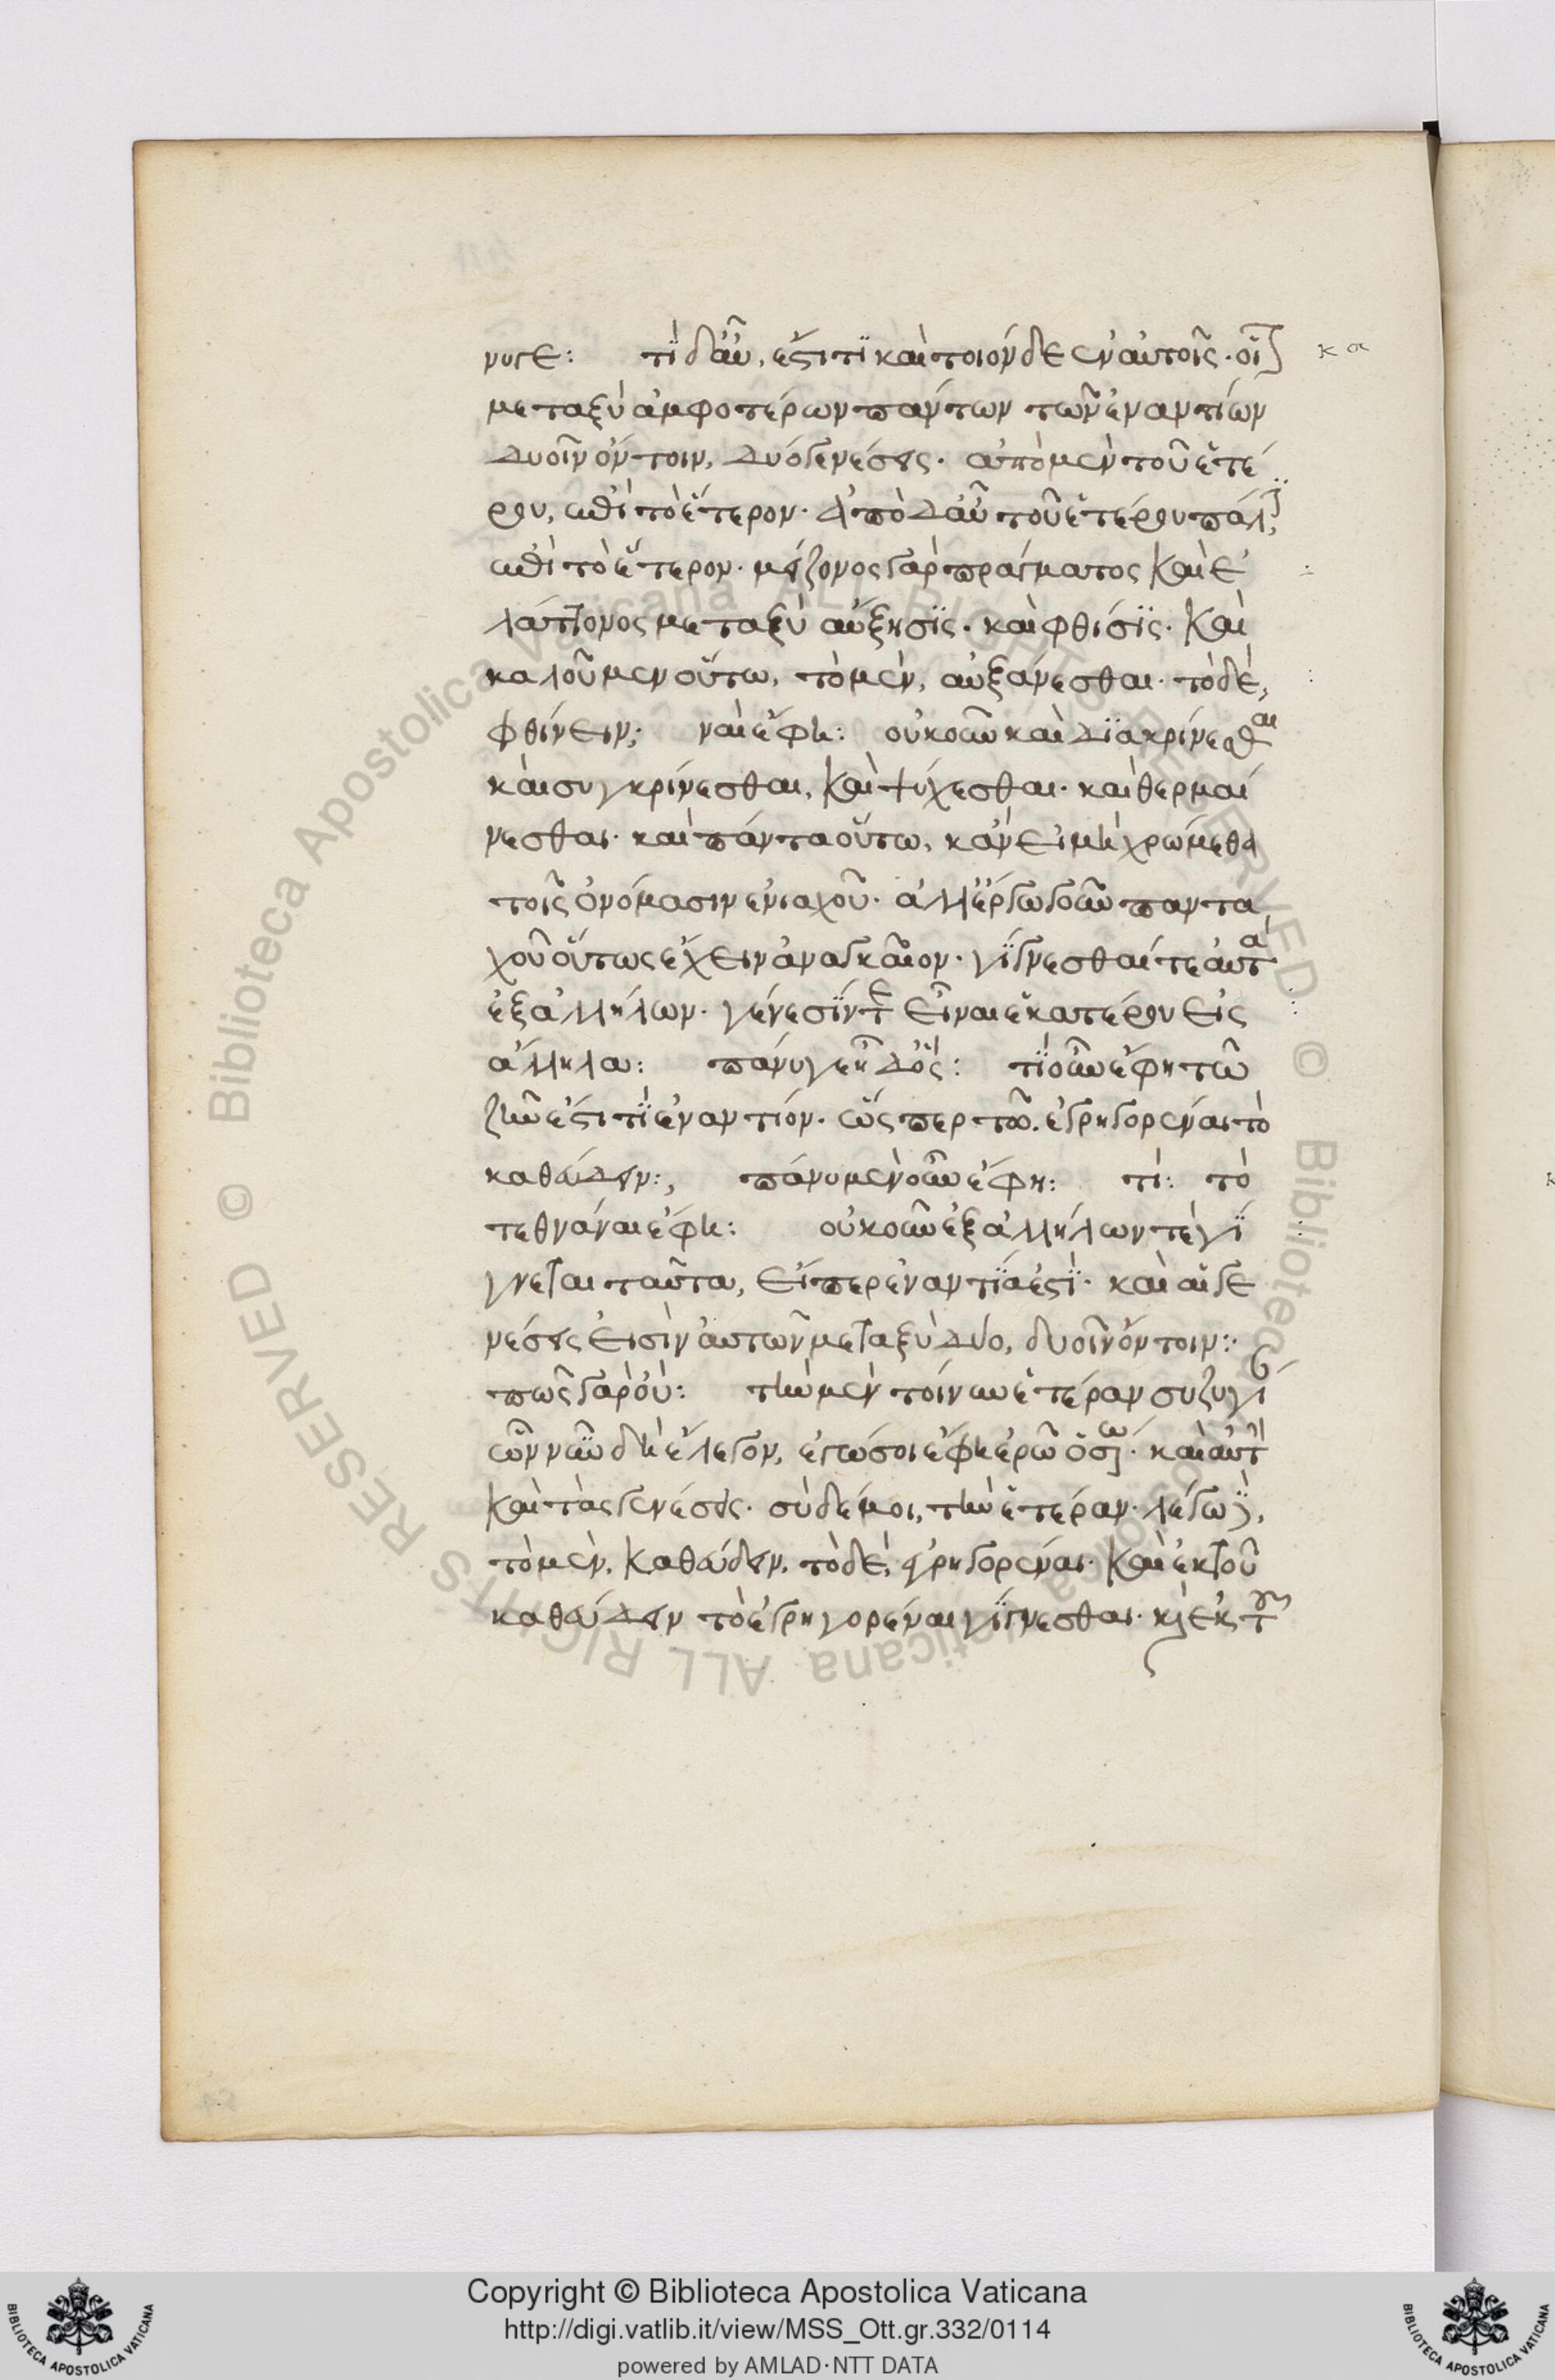 νυγε: τί δ' αὖ, ἔστι τι καὶ τοιόνδε ἐν αὐτοῖς· οἷον
μεταξὺ ἀμφοτέρων πάντων τῶν ἐναντίων
δυοῖν ὄντοιν, δύο γενέσεις· ἀπὸ μὲν τοῦ ἑτέ
ρου, ἐπὶ τὸ ἕτερον· ἀπὸ δ' αὖ τοῦ ἑτέρου πάλιν
ἐπὶ τὸ ἕτερον· μείζονος γὰρ πράγματος καὶ ἐ
λάττονος μεταξὺ αὔξησις· καὶ φθίσις· καὶ
καλοῦμεν οὕτω, τὸ μὲν, αὐξάνεσθαι· τὸ δὲ,
φθίνειν; ναὶ ἔφη: οὐκοῦν καὶ διακρίνεσθαι
καὶ συγκρίνεσθαι, καὶ ψύχεσθαι· καὶ θερμαί
νεσθαι· καὶ πάντα οὕτω, κἂν εἰ μὴ χρώμεθα
τοῖς ὀνόμασιν ἐνιαχοῦ· ἀλλ' ἔργω γοῦν παντα
χοῦ οὕτως ἔχειν ἀναγκαῖον· γίγνεσθαί τε αὐτὰ
ἐξ ἀλλήλων· γένεσίν τε εἶναι ἑκατέρου εἰς
ἄλληλα: πάνυ γε ἦ δ' ὅς: τί οὖν ἔφη τῶ
ζῆν ἐστί τι ἐναντίον· ὥσπερ τῶ ἐγρηγορέναι τὸ
καθεύδειν:, πάνυ μὲν οὖν ἔφη: τί: τὸ
τεθνάναι ἔφη: οὐκοῦν ἐξ ἀλλήλων τε γί
γνεται ταῦτα, εἴπερ ἐναντία ἐστί· καὶ αἱ γε
νέσεις εἰσὶν αὐτῶν μεταξὺ δύο, δυοῖν ὄντοιν:
πῶς γὰρ οὔ: τὴν μὲν τοίνυν ἑτέραν συζυγί
ὧν νῦν δὴ ἔλεγον, ἐγώ σοι ἔφη ἐρῶ ὁ σω· καὶ αὐτὴν
καὶ τὰς γενέσεις· σὺ δέ μοι, τὴν ἑτέραν· λέγω δὲ,
τὸ μὲν, καθεύδειν, τὸ δὲ, ἐγρηγορέναι· καὶ ἐκ τοῦ
καθεύδειν τὸ ἐγρηγορέναι γίγνεσθαι· καὶ ἐκ τοῦ
κα
Copyright © Biblioteca Apostolica Vaticana
http://digi.vatlib.it/view/MSS_Ott.gr.332/0114
powered by AMLAD·NTT DATA